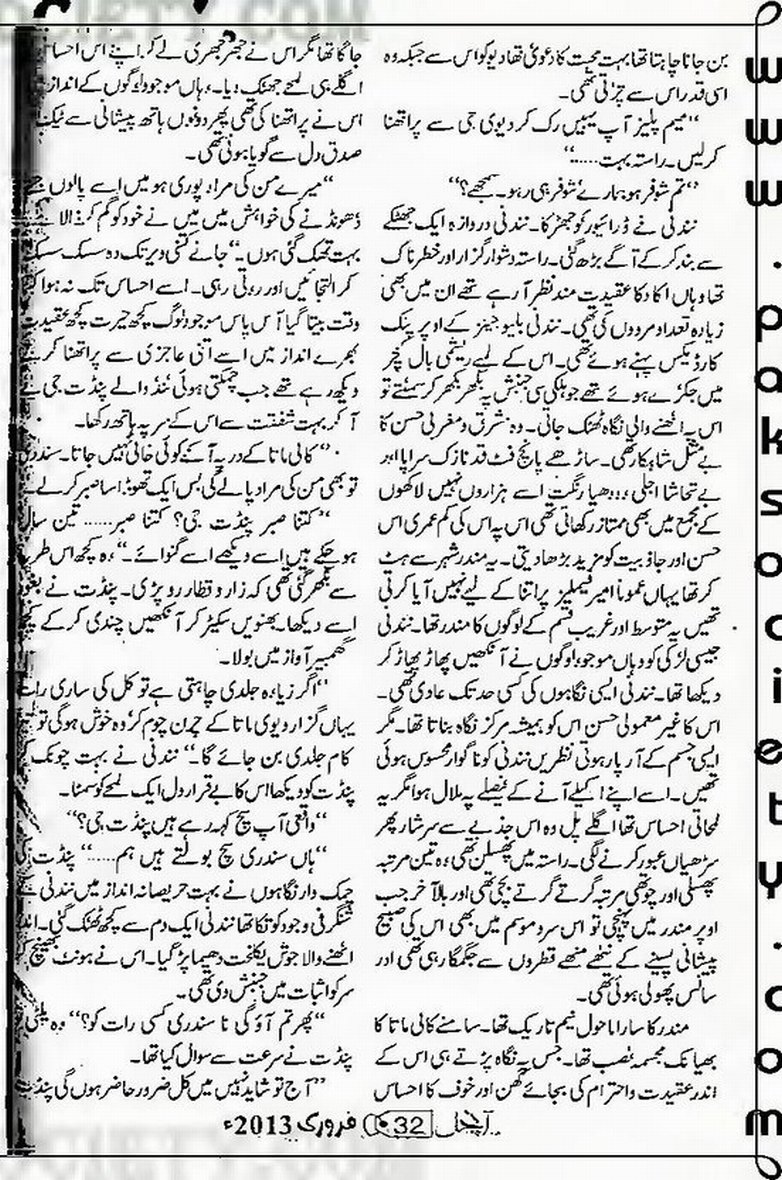 بن جانا چاہتا تھا بہت محبت کا دعویٰ تھا دیو کو اس سے جبکہ وہ
اسی قدر اس سے چڑتی تھی۔
”میم پلیز آپ یہیں رک کر دیوی جی سے پراتھنا
کرلیں۔ راستہ بہت......“
”تم شوفر ہو ہمارے شوفر ہی رہو۔ سمجھے؟“
نندنی نے ڈرائیور کو جھڑکا۔ نندنی دروازہ ایک جھٹکے
سے بند کر کے آگے بڑھ گئی۔ راستہ دشوار گزار اور خطرناک
تھا وہاں اکا دکا عقیدت مند نظر آ رہے تھے ان میں بھی
زیادہ تعداد مردوں کی تھی۔ نندنی بلیو جینز کے اوپر پنک
کارڈیکس پہنے ہوئے تھی۔ اس کے لمبے ریشمی بال کیچر
میں جکڑے ہوئے تھے جو ہلکی سی جنبش پہ بکھر بکھر کر سمٹتے تو
اس پہ اٹھنے والی نگاہ ٹھٹک جاتی۔ وہ مشرق و مغربی حسن کا
بے مثل شاہکار تھی۔ ساڑھے پانچ فٹ قد نازک سراپا اور
بے تحاشا اجلی دودھیا رنگت اسے ہزاروں نہیں لاکھوں
کے مجمع میں بھی ممتاز رکھاتی تھی اس پہ اس کی کم عمری اس
حسن اور جاذبیت کو مزید بڑھا دیتی۔ یہ مندر شہر سے ہٹ
کر تھا یہاں عموماً امیر فیملیز پراتنا کے لیے نہیں آیا کرتی
تھیں یہ متوسط اور غریب قسم کے لوگوں کا مندر تھا۔ نندنی
جیسی لڑکی کو وہاں موجود لوگوں نے آنکھیں پھاڑ پھاڑ کر
دیکھا تھا۔ نندنی ایسی نگاہوں کی کسی حد تک عادی تھی۔
اس کا غیر معمولی حسن اس کو ہمیشہ مرکز نگاہ بناتا تھا۔ مگر
ایسی جسم کے آر پار ہوتی نظریں نندنی کو ناگوار محسوس ہوئی
تھیں۔ اسے اپنے اکیلے آنے کے فیصلے پہ ملال ہوا مگر یہ
لمحاتی احساس تھا اگلے پل وہ اس جذبے سے سرشار پھر
سڑھیاں عبور کرنے لگی۔ راستہ میں پھسلن تھی وہ تین مرتبہ
پھسلی اور چوتھی مرتبہ گرتے گرتے بچی تھی اور بالآخر جب
اوپر مندر میں پہنچی تو اس سرد موسم میں بھی اس کی صبیح
پیشانی پسینے کے ننھے منھے قطروں سے جگمگا رہی تھی اور
سانس پھولی ہوئی تھی۔
مندر کا سارا ماحول نیم تاریک تھا۔ سامنے کالی ماتا کا
بھیانک مجسمہ نصب تھا۔ جس پہ نگاہ پڑتے ہی اس کے
اندر عقیدت واحترام کی بجائے گھن اور خوف کا احساس
جاگا تھا مگر اس نے جھر جھری لے کر اپنے اس احساس
اگلے ہی لمحے جھٹک دیا۔ وہاں موجود لوگوں کے انداز
اس نے پراتھنا کی تھی پھر دونوں ہاتھ پیشانی سے ٹیک
صدق دل سے گویا ہوئی تھی۔
”میرے من کی مراد پوری ہو میں اسے پالوں جسے
ڈھونڈنے کی خواہش میں میں نے خود کو گم کر ڈالا
بہت تھک گئی ہوں۔“ جانے کتنی دیر تک وہ سسک سسک
کر التجائیں اور روتی رہی۔ اسے احساس تک نہ ہوا
وقت بیتا گیا آس پاس موجود لوگ کچھ حیرت کچھ عقیدت
بھرے انداز میں اسے اتنی عاجزی سے پراتھنا کرتے
دیکھ رہے تھے جب چمکتی ہوئی ٹنڈ والے پنڈت جی نے
آ کر بہت شفقت سے اس کے سر پہ ہاتھ رکھا۔
”کالی ماتا کے در پہ آ کے کوئی خالی نہیں جاتا۔ سندری
تو بھی من کی مراد پالے گی بس ایک تھوڑا سا صبر کر لے۔
”کتنا صبر پنڈت جی؟ کتنا صبر...... تین سال
ہو چکے ہیں اسے دیکھے اسے گنوائے۔“ وہ کچھ اس طرح
سے بکھر گئی تھی کہ زار و قطار رو پڑی۔ پنڈت نے بغور
اسے دیکھا۔ بھنویں سکیڑ کر آنکھیں چندی کر کے کچھ
گھمبیر آواز میں بولا۔
”اگر زیادہ جلدی چاہتی ہے تو کل کی ساری رات
یہاں گزار دیوی ماتا کے چرن چوم کر وہ خوش ہو گی تو
کام جلدی بن جائے گا۔“ نندنی نے بہت چونک
پنڈت کو دیکھا اس کا بے قرار دل ایک لمحے کو سمٹا۔
”واقعی آپ سچ کہہ رہے ہیں پنڈت جی؟“
”ہاں سندری سچ بولتے ہیں ہم......“ پنڈت کی
چمک دار نگاہوں نے بہت حریصانہ انداز میں نندنی کے
شنگرفی وجود کو تکا تھا نندنی ایک دم سے کچھ ٹھٹک گئی۔
اٹھنے والا جوش یکلخت دھیما پڑ گیا۔ اس نے ہونٹ بھینچ
سر کو اثبات میں جنبش دی تھی۔
”پھر تم آؤ گی نا سندری کسی رات کو؟“ وہ پلٹی
پنڈت نے سرعت سے سوال کیا تھا۔
”آج تو شاید نہیں میں کل ضرور حاضر ہوں گی پنڈت
آنچل 32 فروری 2013ء
www.paksociety.com